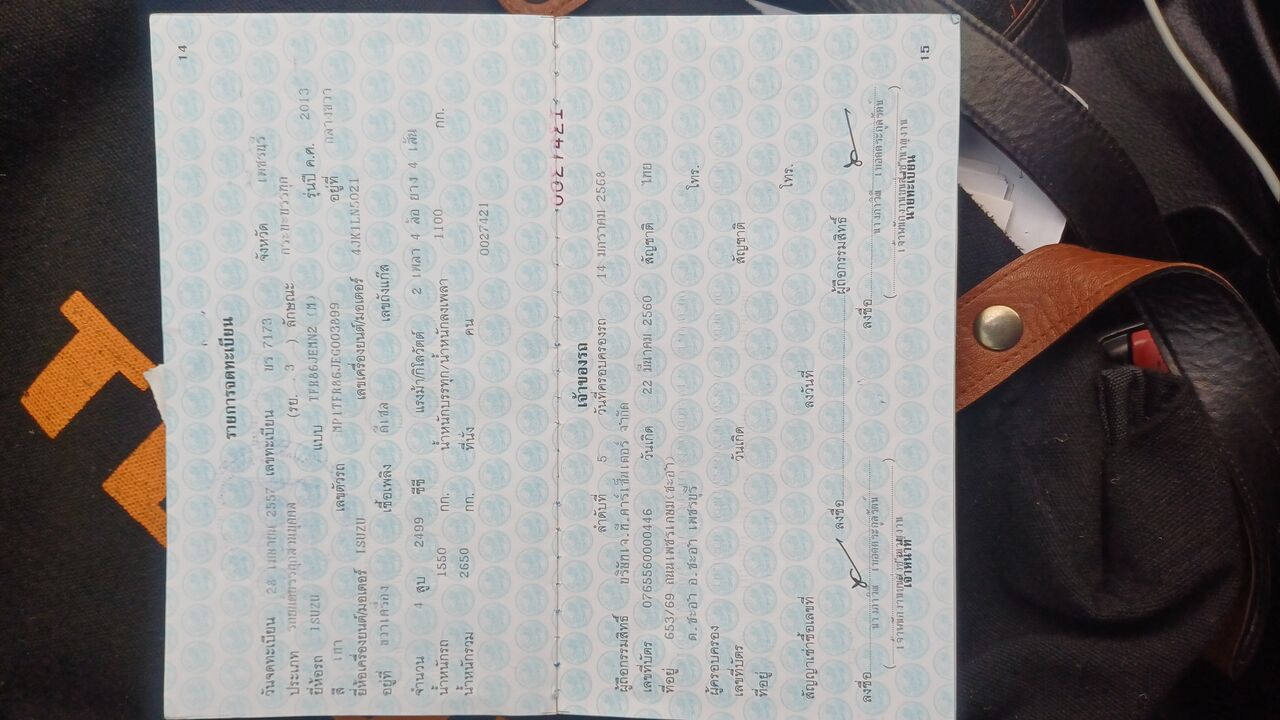 14
รายการจดทะเบียน
วันจดทะเบียน 28 เมษายน 2557 เลขทะเบียน บร 7173 จังหวัด เพชรบุรี
ประเภท รถยนต์บรรทุกส่วนบุคคล (รย. 3 ) ลักษณะ กระบะบรรทุก
ยี่ห้อรถ ISUZU แบบ TFR86JEMN2 (M) รุ่นปี ค.ศ. 2013
สี เทา เลขตัวรถ MP1TFR86JEG003899 อยู่ที่ กลางขวา
ยี่ห้อเครื่องยนต์/มอเตอร์ ISUZU เลขเครื่องยนต์/มอเตอร์ 4JK1LN5021
อยู่ที่ ขวาเครื่อง เชื้อเพลิง ดีเซล เลขถังแก๊ส
จำนวน 4 สูบ 2499 ซีซี แรงม้า/กิโลวัตต์ 2 เพลา 4 ล้อ ยาง 4 เส้น
น้ำหนักรถ 1550 กก. น้ำหนักบรรทุก/น้ำหนักลงเพลา 1100 กก.
น้ำหนักรวม 2650 กก. ที่นั่ง คน
0027421
0027421
เจ้าของรถ
ลำดับที่ 5 วันที่ครอบครองรถ 14 มกราคม 2568
ผู้ถือกรรมสิทธิ์ บริษัทเจ.ที.คาร์เซ็นเตอร์ จำกัด
เลขที่บัตร 0765560000446 วันเกิด 22 มีนาคม 2560 สัญชาติ ไทย
ที่อยู่ 653/69 ถนนเพชรเกษม(ชะอำ)
ต.ชะอำ อ.ชะอำ เพชรบุรี โทร.
ผู้ครอบครอง
เลขที่บัตร วันเกิด สัญชาติ
ที่อยู่ โทร.
สัญญาเช่าซื้อเลขที่ ลงวันที่
ลงชื่อ ผู้ถือกรรมสิทธิ์
ลงชื่อ ลงชื่อ
เจ้าหน้าที่ นายทะเบียน
15